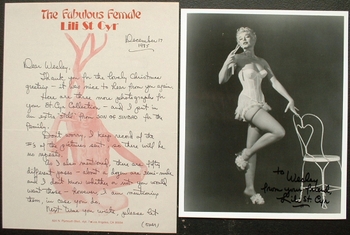 The Fabulous Female
Lili St Cyr
December 17
1995
Dear Wesley,
Thank you for the lovely Christmas
greeting - it was nice to hear from you again.
Here are three more photographs for
your St Cyr Collection - and I put in
an extra still, from SON OF SINBAD for
the family.
Don't worry, I keep record of the
#'s of the pictures sent - there will be
no repeats.
As I also mentioned, there are fifty
different poses - about a dozen are semi-nude
and I don't know whether or not you would
want those - however I am mentioning
them, in case you do.
Next time you write, please let
(over)
to Wesley
from your friend
Lili St Cyr